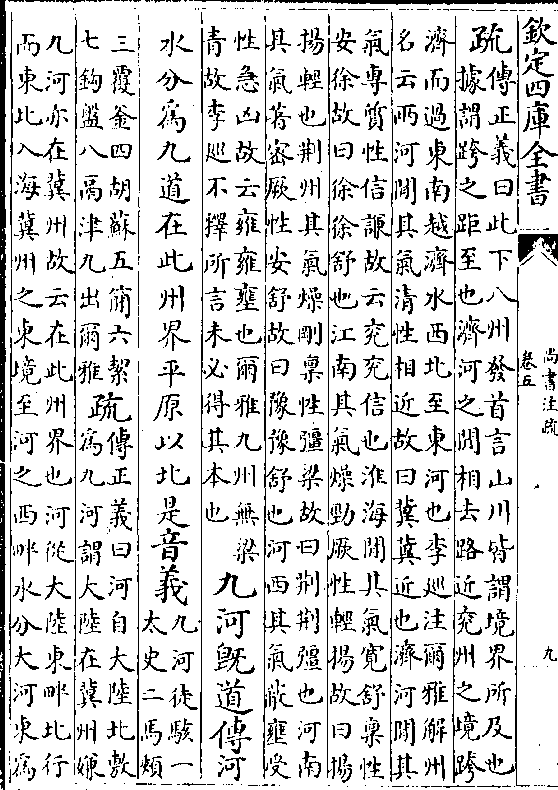 欽定四庫全書
尚書注疏
卷五
九
疏傳正義曰此下八州發首言山川皆謂境界所及也
據謂跨之距至也濟河之間相去路近兖州之境跨
濟而過東南越濟水西北至東河也李巡注爾雅解州
名云兩河間其氣清性相近故曰冀冀近也濟河間其
氣專質性信謙故云兖兖信也淮海間其氣寛舒稟性
安徐故曰徐徐舒也江南其氣燥勁厥性輕揚故曰揚
揚輕也荆州其氣燥剛稟性彊梁故曰荆荆彊也河南
其氣著宻厥性安舒故曰豫豫舒也河西其氣蔽壅受
性急凶故云雍雍壅也爾雅九州無梁
青故李巡不擇所言未必得其本也
九河既道傳河
水分爲九道在此州界平原以北是音義
九河徒駭一
太史二馬頰
三覆釜四胡蘇五簡六絜
七鉤盤八鬲津九出爾雅
疏傳正義曰河自大陸北敷
爲九河謂大陸在冀州嫌
九河亦在冀州故云在此州界也河從大陸東畔北行
而東北入海冀州之東境至河之西畔水分大河東爲